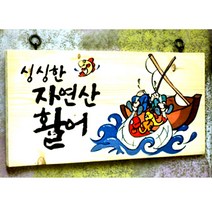 싱싱한
자연산
활어